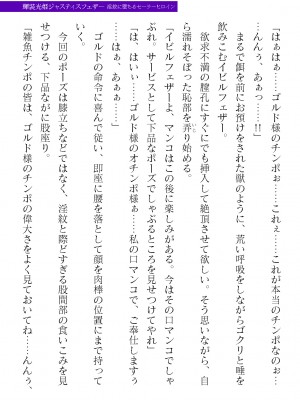 輝装光姫ジャスティスフェザー 庇欲に堕ちるセーラーヒロイン
「はぁはぁ…ゴルド様のチンポぉ…これぇ…これが本当のチンポなのぉ…
…んんぅ、あぁぁっ…!!」
まるで餌を前にお預けをされた獣のように、荒い呼吸をしながらゴクリと唾を
飲みこむイビルフェザー。
欲求不満の膣孔にすぐにでも挿入して絶頂させて欲しい。そう思いながら、自
ら濡れそぼった恥部を弄り始める。
「イビルフェザーよ、マンコはこの後に楽しみがある。今はその口マンコでしゃ
ぶれ。サービスとして下品なポーズでしゃぶるところを見せつけてやれ」
「は、はいぃ…ゴルド様のオチンポ様ぁ…私の口マンコで、ご奉仕しますぅ
…はぁ、あぁぁ…」
ゴルドの命令に喜んで従い、即座に腰を落として顔を肉棒の位置にまで持って
いく。
今回のポーズは膝立ちなどではなく、淫紋と際どすぎる股間部の食いこみを見
せつける、下品ながに股座り。
「雑魚チンポの皆は、ゴルド様のチンポの偉大さをよく見ておいてね…んんぅ、